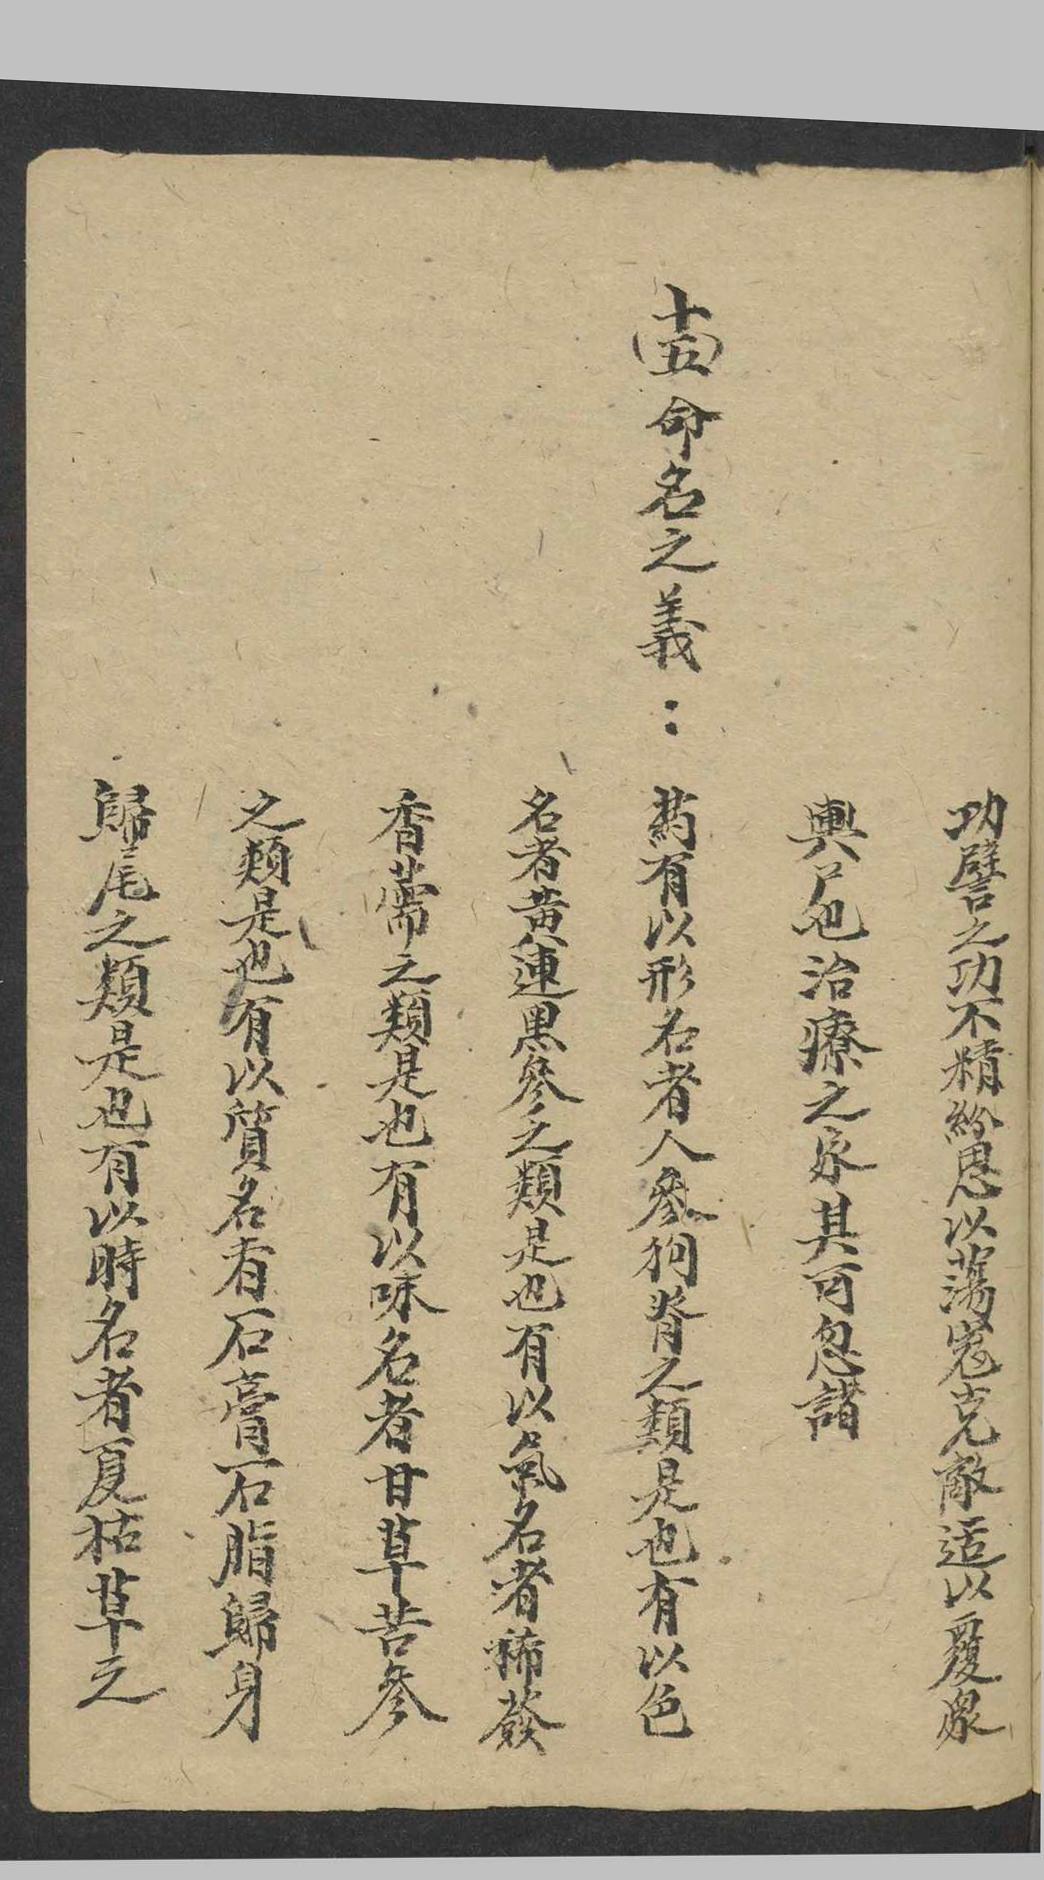 功譬之功不精紛思以蕩寇克敵适以覆眾
輿尸也治療之家其可忽諸
(十五)命名之義：
药有以形名者人參狗脊之類是也有以色
名者黄連黑參之類是也有以氣名者稀薟
香薷之類是也有以味名者甘草苦參
之類是也有以質名者石膏石脂歸身
歸尾之類是也有以時名者夏枯草之